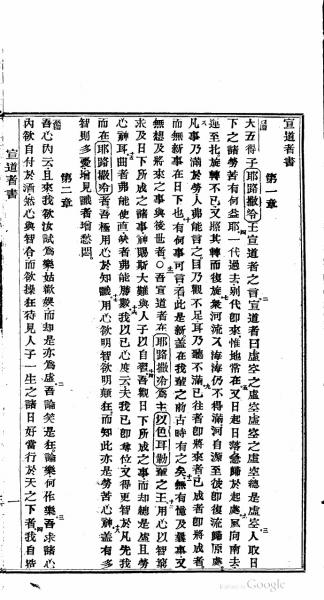 宣道者書
第一章
大五得子耶路撒冷王宣道者之言宣道者曰虛空之虛空虛空之虛空總是虛空人取日
下之諸勞苦有何益耶一代過去別代卽來惟地常在又日起日落急歸於起處風向南去
運至北旋轉不已又照其轉而復旋衆河流入海海仍不得滿河自源至彼卽復流歸原處
凡事乃滿於勞人弗能言之目乃觀不足耳乃聽不滿已往者卽將來者已成者卽將成者
而無新事在日下也有何事可言看此是新蓋在我輩之前古時有之矣無有憶及曩事又
無想及將來之事與後世者○吾宣道者在耶路撒冷爲主以色耳勒輩之王用心以智窮
求及日下所成之諸事神賜斯大難與人子以自習吾觀日下所成之事而却總是虛且勞
心神耳曲者弗能使直缺者弗能勝數我以己心度云夫我已卽尊位又得更智於凡先我
而在耶路撒冷者吾極用心於知識用心欲明智欲明顛狂而知此亦是勞苦心神蓋有多
智則多憂增見識者增愁悶
第二章
吾心內云且來我欲汝試爲樂姑歡娛而却是亦爲虛吾論笑是狂論樂何作樂吾求諸心
內欲自付於酒然心與智合而欲操狂待見人子一生之諸日好當行於天之下者我自造
宣道者書
Google